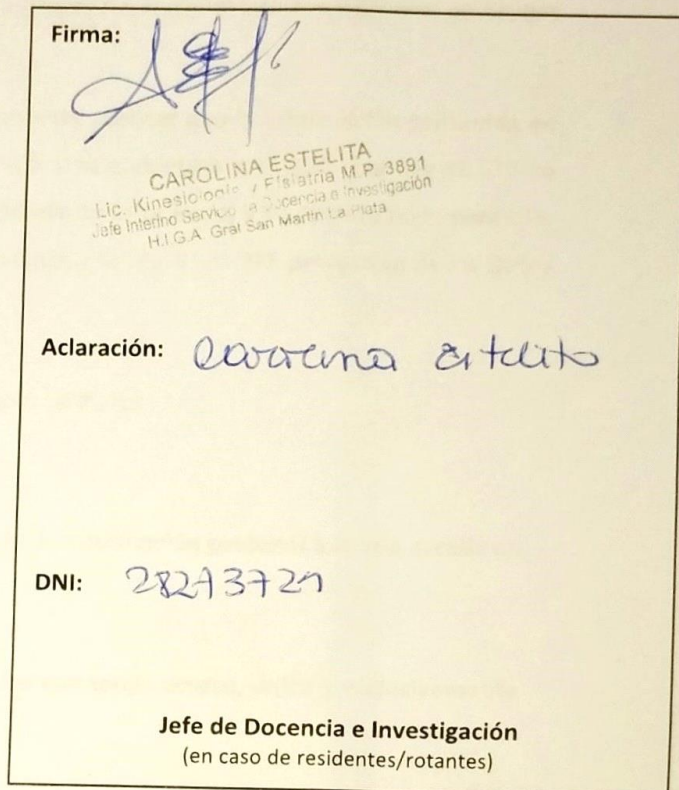 Firma:
CAROLINA ESTELITA
Lic. Kinesiología y Fisiatría M.P. 3891
Jefe Interino Servicio de Docencia e Investigación
H.I.G.A. Gral San Martín La Plata
Aclaración: Carolina Estelita
DNI: 28273721
Jefe de Docencia e Investigación
(en caso de residentes/rotantes)